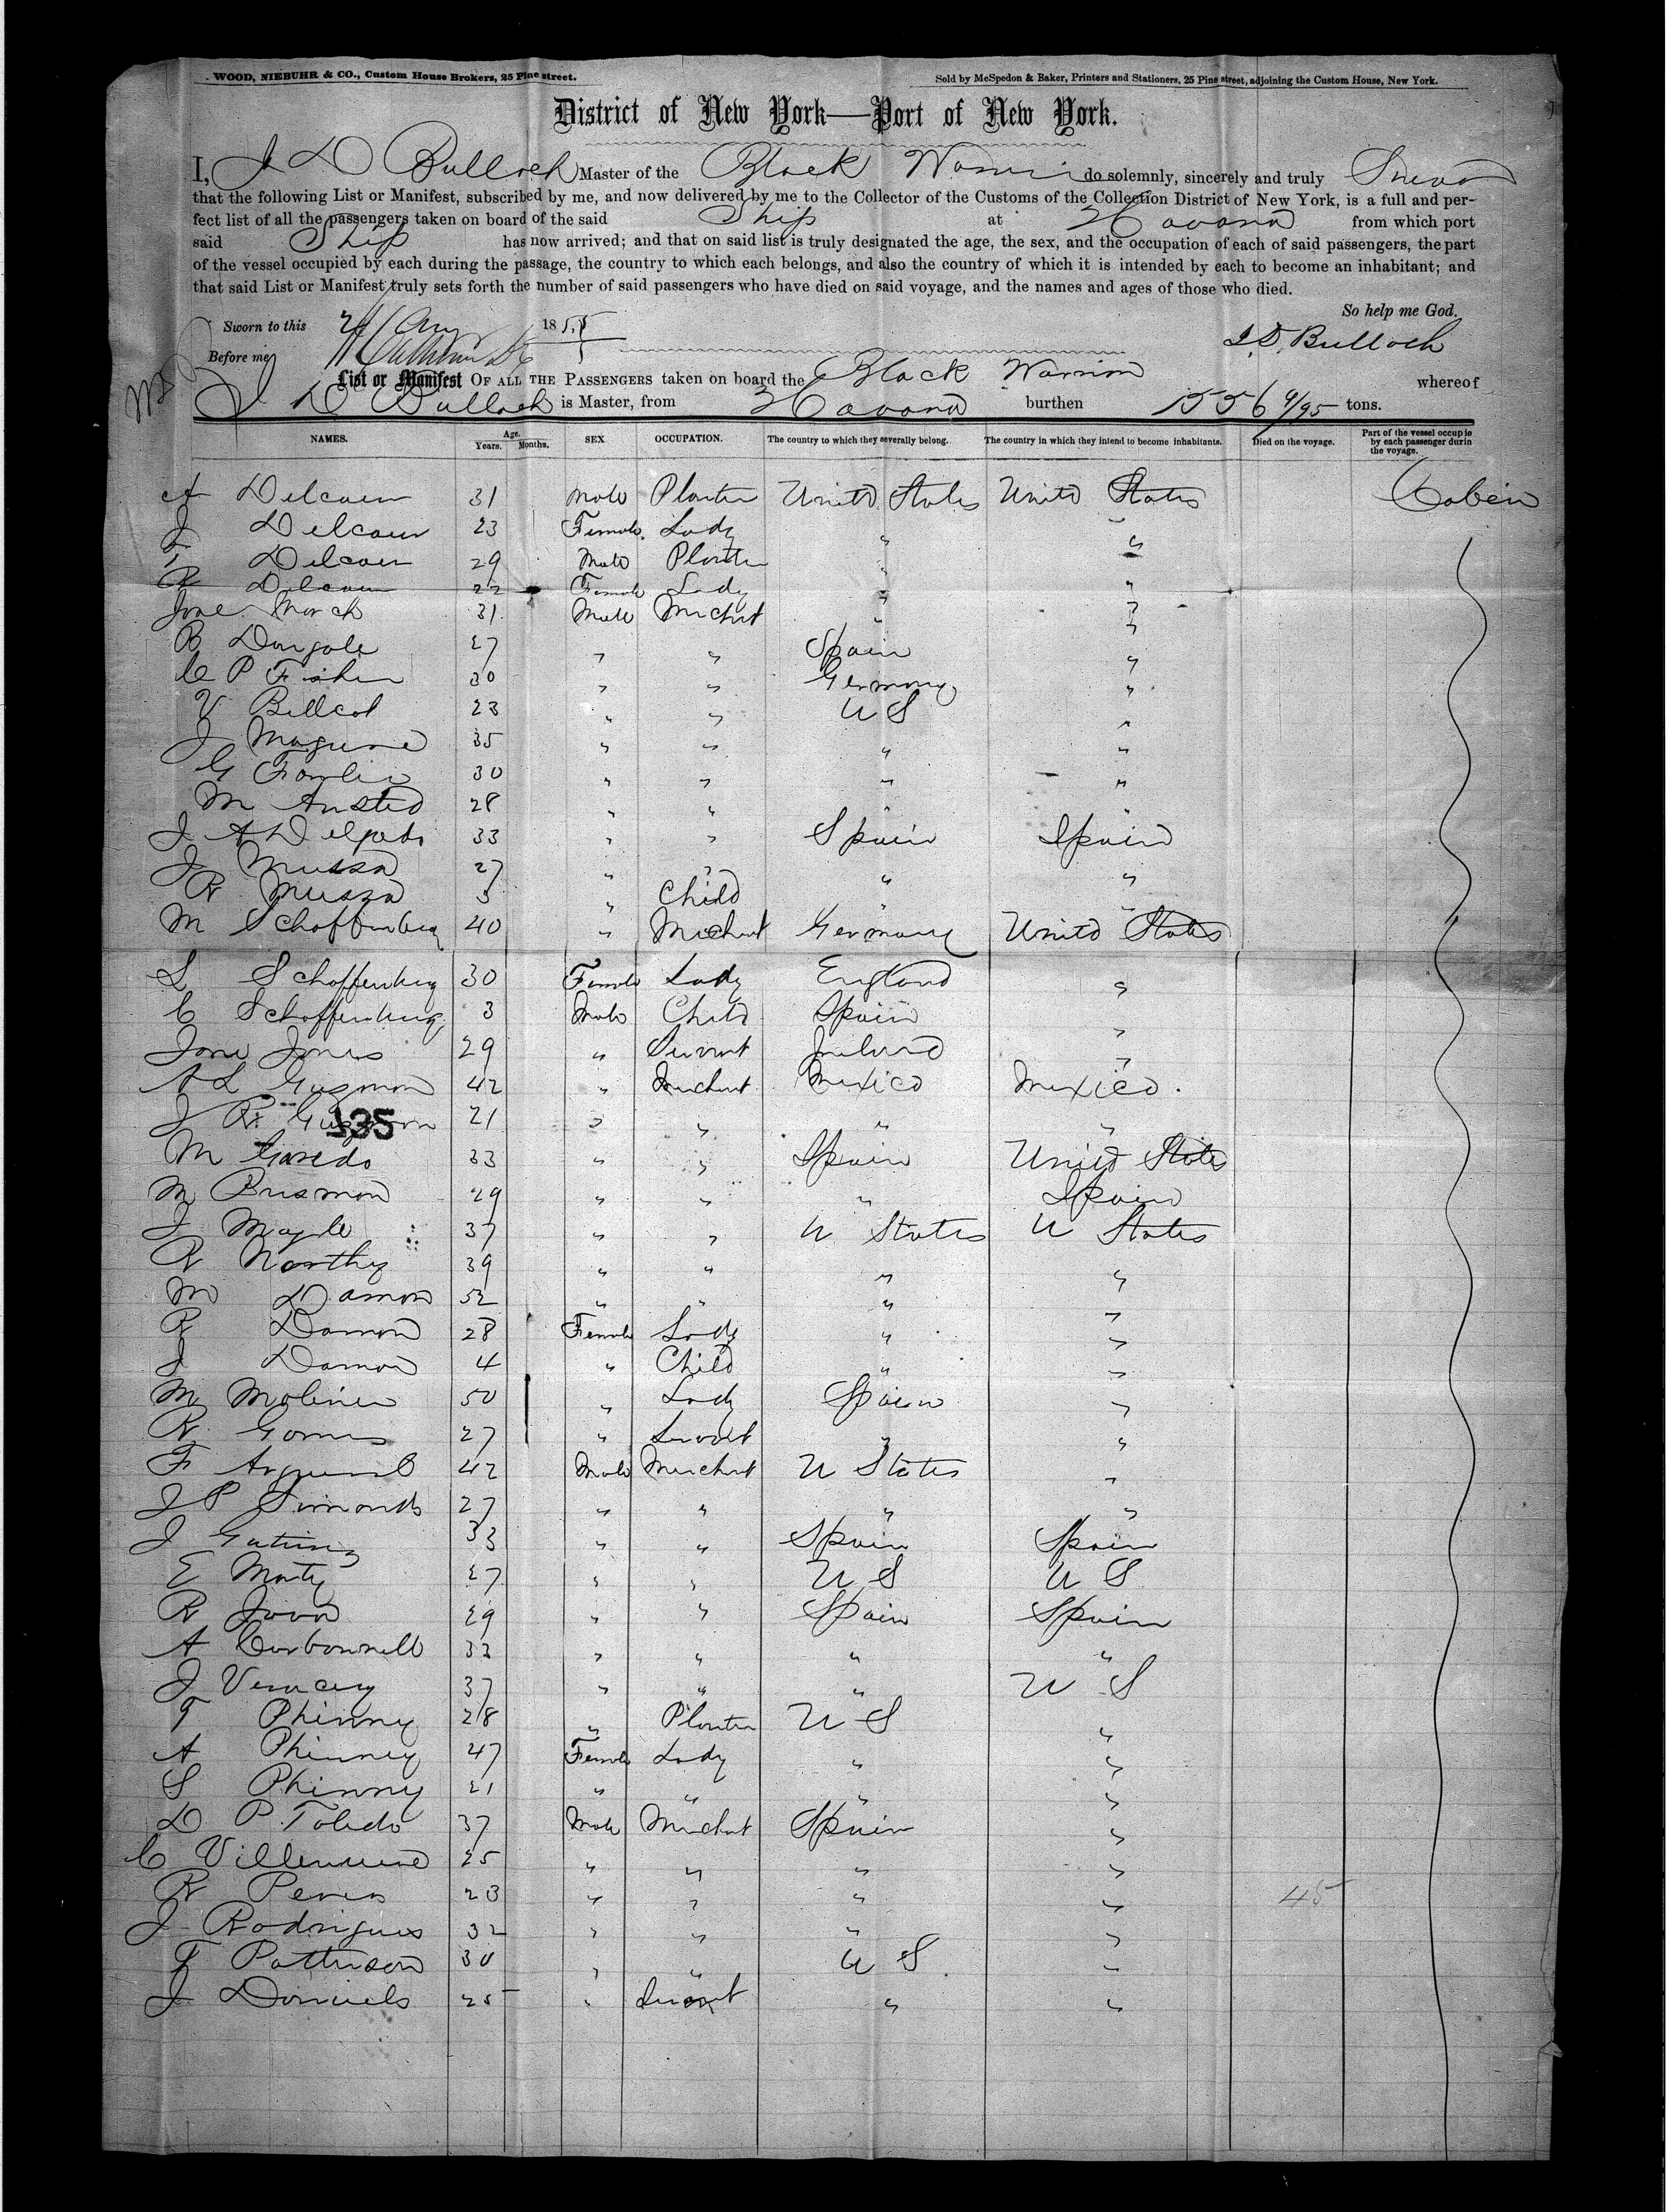 WOOD, NIEBUHR & CO., Custom House Brokers, 25 Pine street. Sold by McSpedon & Baker, Printers and Stationers, 25 Pine street, adjoining the Custom House, New York.
District of New York—Port of New York.
I, J D Bulloch Master of the Black Warrior do solemnly, sincerely and truly Swear
that the following List or Manifest, subscribed by me, and now delivered by me to the Collector of the Customs of the Collection District of New York, is a full and per-
fect list of all the passengers taken on board of the said Ship at Havana from which port
said Ship has now arrived; and that on said list is truly designated the age, the sex, and the occupation of each of said passengers, the part
of the vessel occupied by each during the passage, the country to which each belongs, and also the country of which it is intended by each to become an inhabitant; and
that said List or Manifest truly sets forth the number of said passengers who have died on said voyage, and the names and ages of those who died.
So help me God.
Sworn to this 1855
Before me J D Bulloch
List or Manifest OF ALL THE PASSENGERS taken on board the Black Warrior whereof
J D Bulloch is Master, from Havana burthen 1556 9/95 tons.
NAMES. Age. Years. Months. SEX. OCCUPATION. The country to which they severally belong. The country in which they intend to become inhabitants. Died on the voyage. Part of the vessel occupied by each passenger during the voyage.
A 31 Male Planter United States United States Cabin
J 23 Female Lady " "
F 29 Male Planter " "
R 22 Female Lady " "
Jose March 31 Male Mechnt " "
B 27 " " Spain "
C P Fisher 30 " " Germany "
V Billcot 23 " " U S "
J Maguire 35 " " " "
G 30 " " " "
M Ansted 28 " " " "
J A Delgado 33 " " Spain Spain
J Mussa 27 " " " "
R Mussa 3 " Child " "
M Schaffenberg 40 " Mechnt Germany United States
L Schaffenberg 30 Female Lady England "
C Schaffenberg 3 Male Child Spain "
Jones 29 " Servant Ireland "
A L Guzman 42 " Merchnt Mexico Mexico.
J R Guzman 21 " " " "
135
M 33 " " Spain United States
M Busmon 29 " " " Spain
J 37 " " U States U States
R Northy 39 " " " "
M Damon 52 " " " "
R Damon 28 Female Lady " "
J Damon 4 " Child " "
M Moliner 50 " Lady Spain "
R Gomes 27 " Servant " "
F 42 Male Merchnt U States "
J P Simonds 27 " " " "
J 33 " " Spain Spain
E Marty 27 " " U S U S
R Jova 29 " " Spain Spain
A Carbonnell 33 " " " "
J 37 " " " U S
F Phinny 28 " Planter U S "
A Phinney 47 Female Lady " "
S Phinny 21 " " " "
D P Toledo 37 Male Merchnt Spain "
C 25 " " " "
R Peres 23 " " " " 45
J Rodrigues 32 " " " "
F Patterson 30 " " U S "
J Daniels 25 " Servant " "